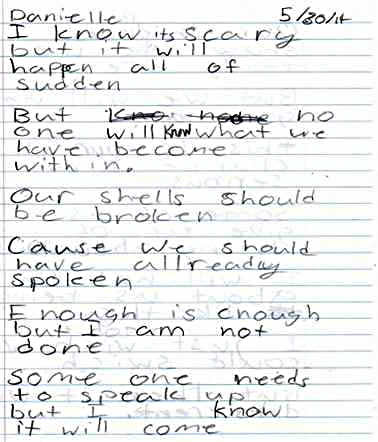 Danielle 5/30/14
I know its scary
but it will
happen all of
sudden
But no
one will know what we
have become
with in.
Our shells should
be broken
Cause we should
have allready
spoken
Enough is enough
but I am not
done
Some one needs
to speak up
but I know
it will come